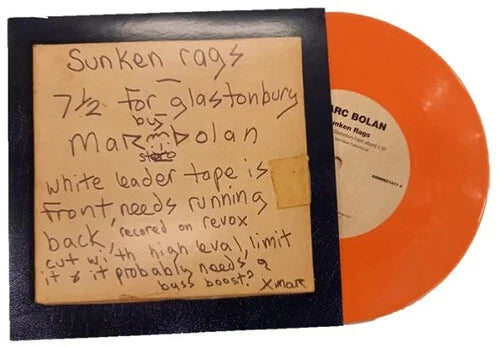 Sunken rags
7½ for glastonbury
by
Marc Bolan
stereo
white leader tape is
front, needs running
back, recored on revox
cut with high leval limit
it & it probably needs a
bass boost? X marc
ARC BOLAN
unken Rags